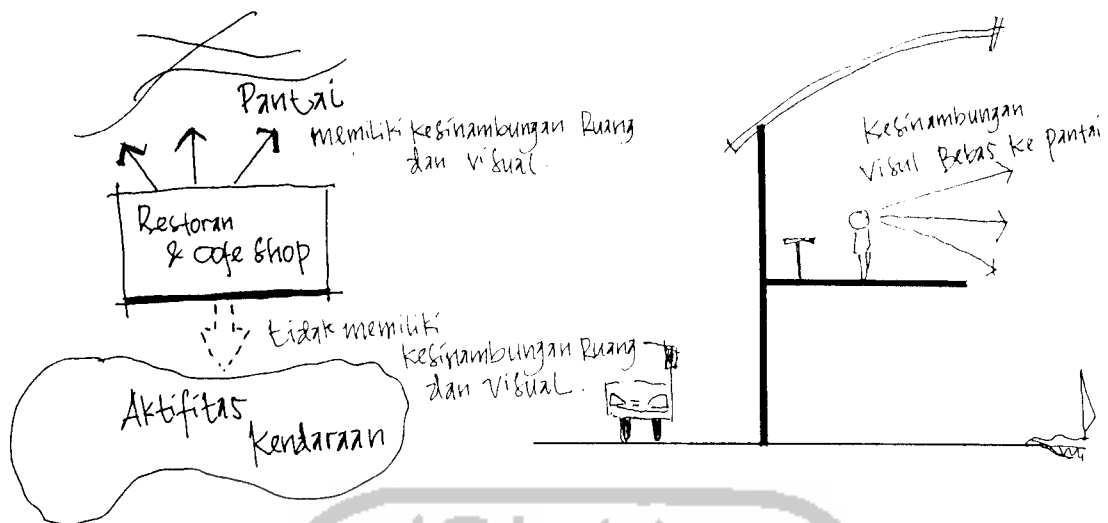 Pantai
memiliki kesinambungan Ruang
dan visual.
Restoran
& cofe shop
tidak memiliki
kesinambungan Ruang
dan visual.
Aktifitas
kendaraan
Kesinambungan
visul Bebas ke pantai